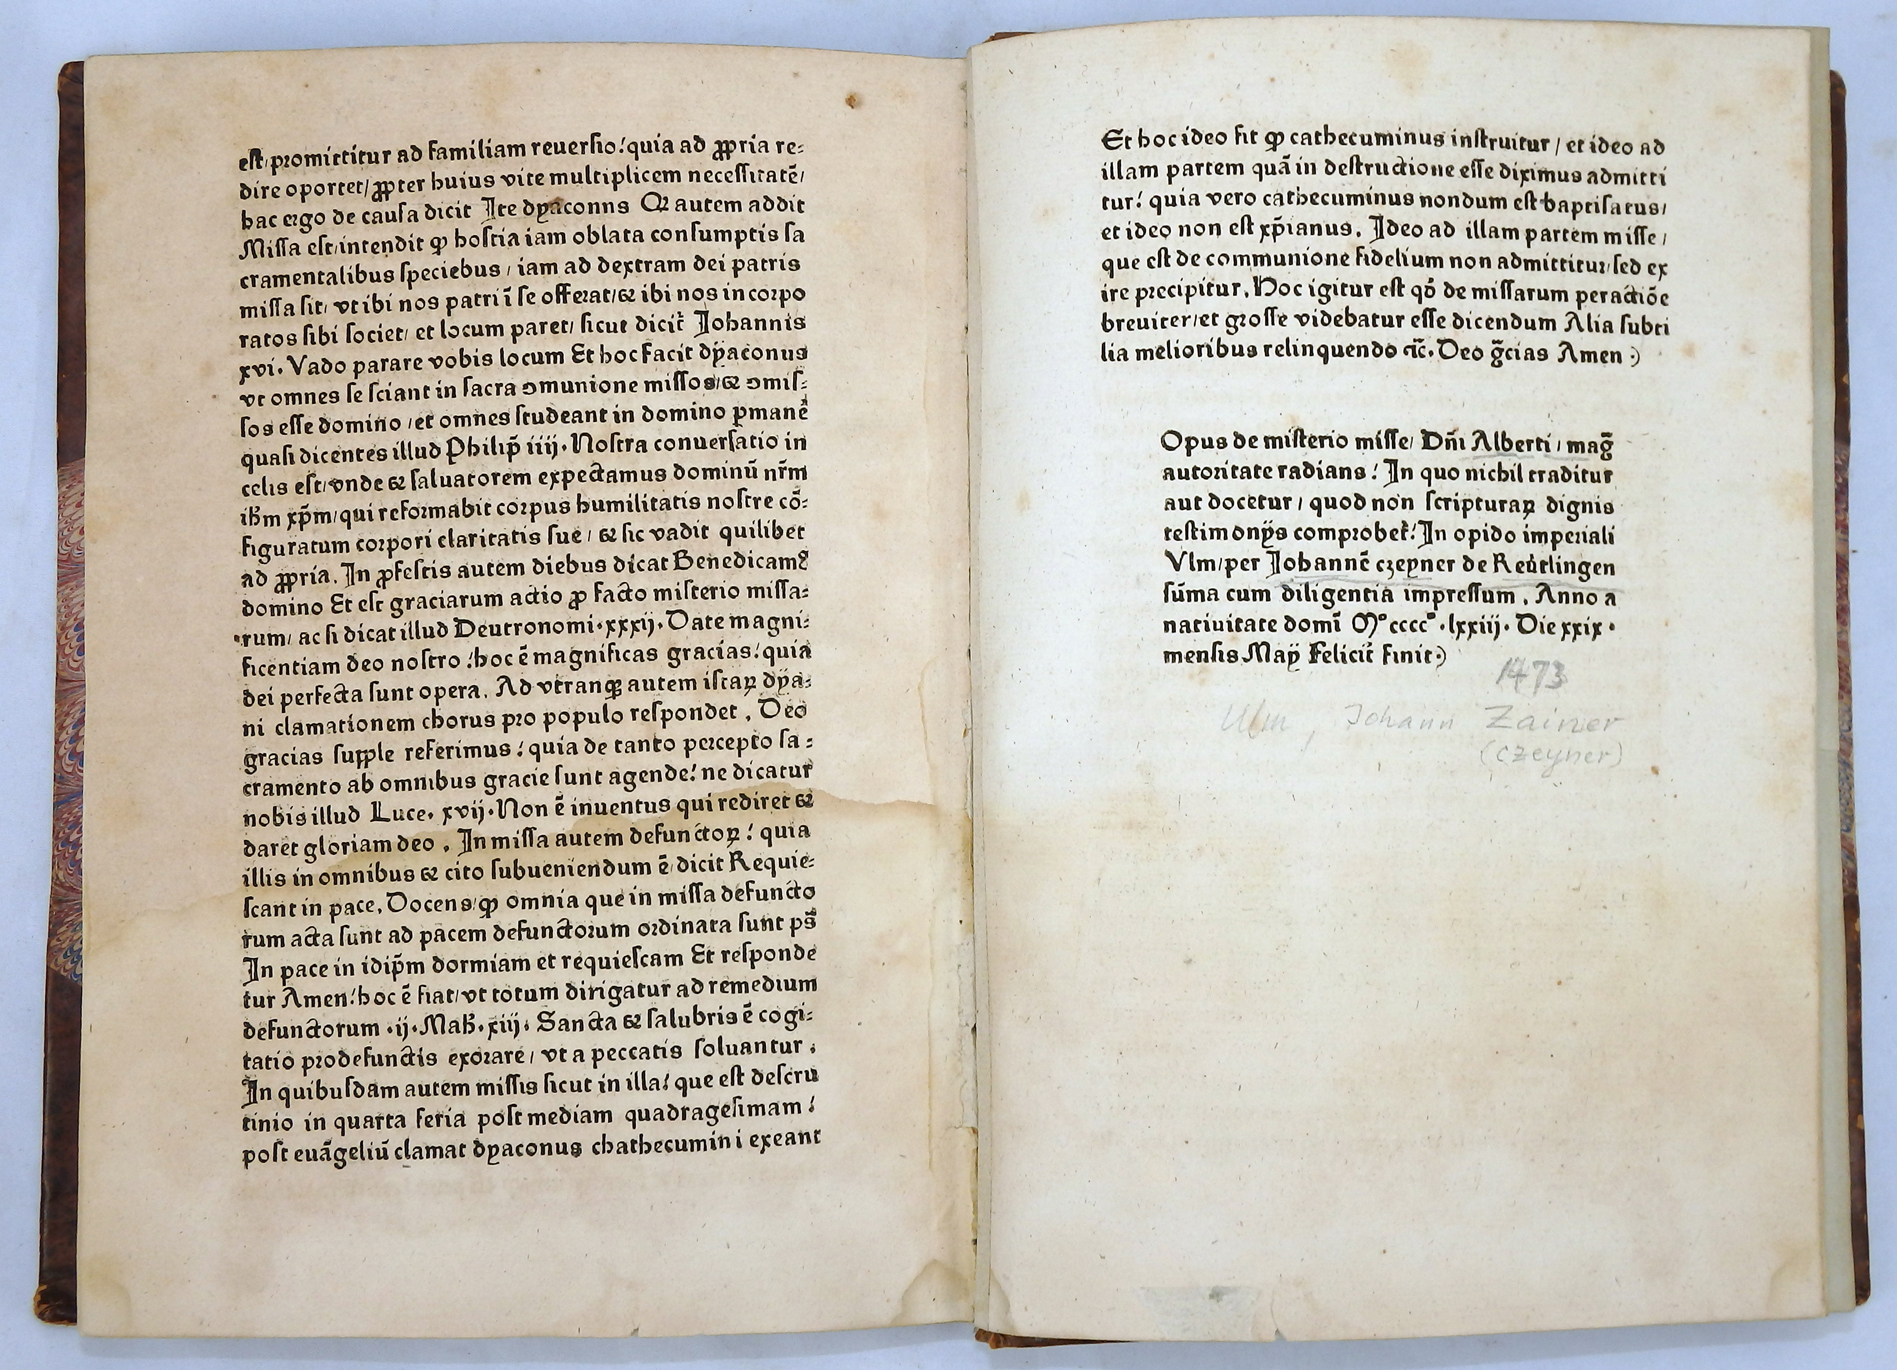 est/promittitur ad familiam reuersio!quia ad ꝓpria re⸗
dire oportet/ꝓpter huius vite multiplicem necessitatē/
hac ergo de causa dicit Ite dyaconns Qꝛ autem addit
Missa est/intendit ꝙ hostia iam oblata consumptis sa
cramentalibus speciebus/iam ad dextram dei patris
missa sit/vt ibi nos patri ī se offerat/⁊ ibi nos incorpo
ratos sibi societ/et locum paret/sicut dicit̄ Johannis
xvi. Vado parare vobis locum Et hoc facit dyaconus
vt omnes se sciant in sacra ꝯmunione missos/⁊ ꝯmis⸗
sos esse domino/et omnes studeant in domino ꝑmanē
quasi dicentes illud Philip̄ iiij. Nostra conuersatio in
celis est/vnde ⁊ saluatorem expectamus dominū nr̄m
ihm xp̄m/qui reformabit corpus humilitatis nostre cō⸗
figuratum corpori claritatis sue/⁊ sic vadit quilibet
ad ꝓpria. In ꝓfestis autem diebus dicat Benedicamꝰ
domino Et est graciarum actio ꝓ facto misterio missa⸗
rum/ac si dicat illud Deutronomi.xxxij.Date magni⸗
ficentiam deo nostro!hoc ē magnificas gracias!quia
dei perfecta sunt opera. Ad vtranqꝫ autem istaꝝ dya⸗
ni clamationem chorus pro populo respondet. Deo
gracias supple referimus!quia de tanto percepto sa⸗
cramento ab omnibus gracie sunt agende!ne dicatur
nobis illud Luce. xvij.Non ē inuentus qui rediret ⁊
daret gloriam deo. In missa autem defunctoꝝ! quia
illis in omnibus ⁊ cito subueniendum ē dicit Requie⸗
scant in pace.Docens/ꝙ omnia que in missa defuncto
rum acta sunt ad pacem defunctorum ordinata sunt ps̄
In pace in idip̄m dormiam et requiescam Et responde
tur Amen!hoc ē fiat/vt totum dirigatur ad remedium
defunctorum.ij.Mah̄.xiij. Sancta ⁊ salubris ē cogi⸗
tatio prodefunctis exorare/vt a peccatis soluantur.
In quibusdam autem missis sicut in illa!que est descru
tinio in quarta feria post mediam quadragesimam!
post euāgeliū clamat dyaconus chathecumini exeant
Et hoc ideo fit ꝙ cathecuminus instruitur/et ideo ad
illam partem quā in destructione esse diximus admitti
tur! quia vero cathecuminus nondum est baptisatus/
et ideo non est xp̄ianus. Ideo ad illam partem misse/
que est de communione fidelium non admittitur/sed ex
ire precipitur. Hoc igitur est qđ de missarum peractiōe
breuiter/et grosse videbatur esse dicendum Alia subti
lia melioribus relinquendo ⁊c̄. Deo ḡcias Amen :)
Opus de misterio misse/Dn̄i Alberti/maḡ
autoritate radians! In quo nichil traditur
aut docetur/quod non scripturaꝝ dignis
testimonÿs comprobet̄!In opido imperiali
Vlm/per Johannē czeyner de Reutlingen
sūma cum diligentia impressum. Anno a
natiuitate domī M°cccc°.lxxiij. Die xxix.
mensis Maÿ Felicit̄ finit:)
1473
Ulm, Johann Zainer
(czeyner)